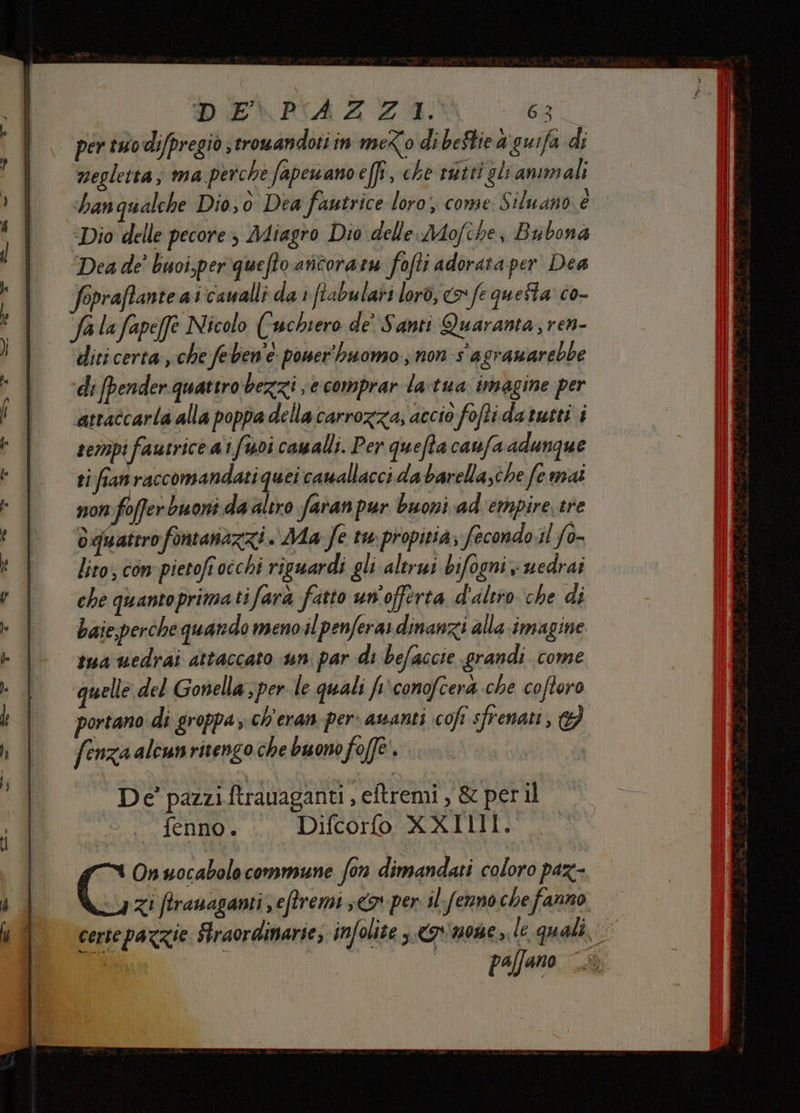 DE' PAZZI. 63
per tuo diſpregio, trouandoti in mezo di beſtie à guiſa di
negletta; ma perche ſapeuano eſſi, che tutti gli animali
han qualche Dio, ò Dea fautrice loro, come Siluano è
Dio delle pecore, Miagro Dio delle Moſche, Bubona
Dea de' buoi, per queſto ancora tu foſti adorata per Dea
ſopraſtante a i caualli da i ſtabulari loro, & ſe queſta co-
ſa la ſapeſſe Nicolo Cuchiero de' Santi Quaranta, ren-
diti certa, che ſe ben'è pouer'huomo, non s'agrauarebbe
di ſpender quattro bezzi, e comprar la tua imagine per
attaccarla alla poppa della carrozza, acciò foſti da tutti i
tempi fautrice a i ſuoi caualli. Per queſta cauſa adunque
ti ſian raccomandati quei cauallacci da barella, che ſe mai
non foſſer buoni da altro ſaran pur buoni ad empire tre
ò quattro fontanazzi. Ma ſe tu propitia, ſecondo il ſo-
lito, con pietoſi occhi riguardi gli altrui biſogni, uedrai
che quanto prima ti ſarà fatto un'offerta d'altro che di
baie, perche quando meno il penſerai dinanzi alla imagine
tua uedrai attaccato un par di beſaccie grandi come
quelle del Gonella, per le quali ſi conoſcerà che coſtoro
portano di groppa, ch'eran per auanti coſi sfrenati, &
ſenza alcun ritengo che buono foſſe.
De' pazzi ſtrauaganti, eſtremi, & per il
ſenno. Diſcorſo XXIIII.
Con uocabolo commune ſon dimandati coloro paz-
zi ſtrauaganti, eſtremi, & per il ſenno che fanno
certe pazzie ſtraordinarie, inſolite, & noue, le quali
paſſano